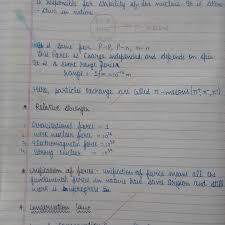 is responsible for stability of the nucleus. It is also
true in nature
It is same for P-P, P-n, n-n
This force is charge independent and depends on spin
It is a short range force
range = 1fm = 10⁻¹⁵ m
Here, particle exchange are called π-mesons
* Relative strength
1. Gravitational force = 1
2. weak nuclear force =
3. electromagnetic force =
4. strong nuclear
* Unification of forces:- unification of forces means all the
fundamental forces in nature have same origin and still
work is in progress
* Conservation laws